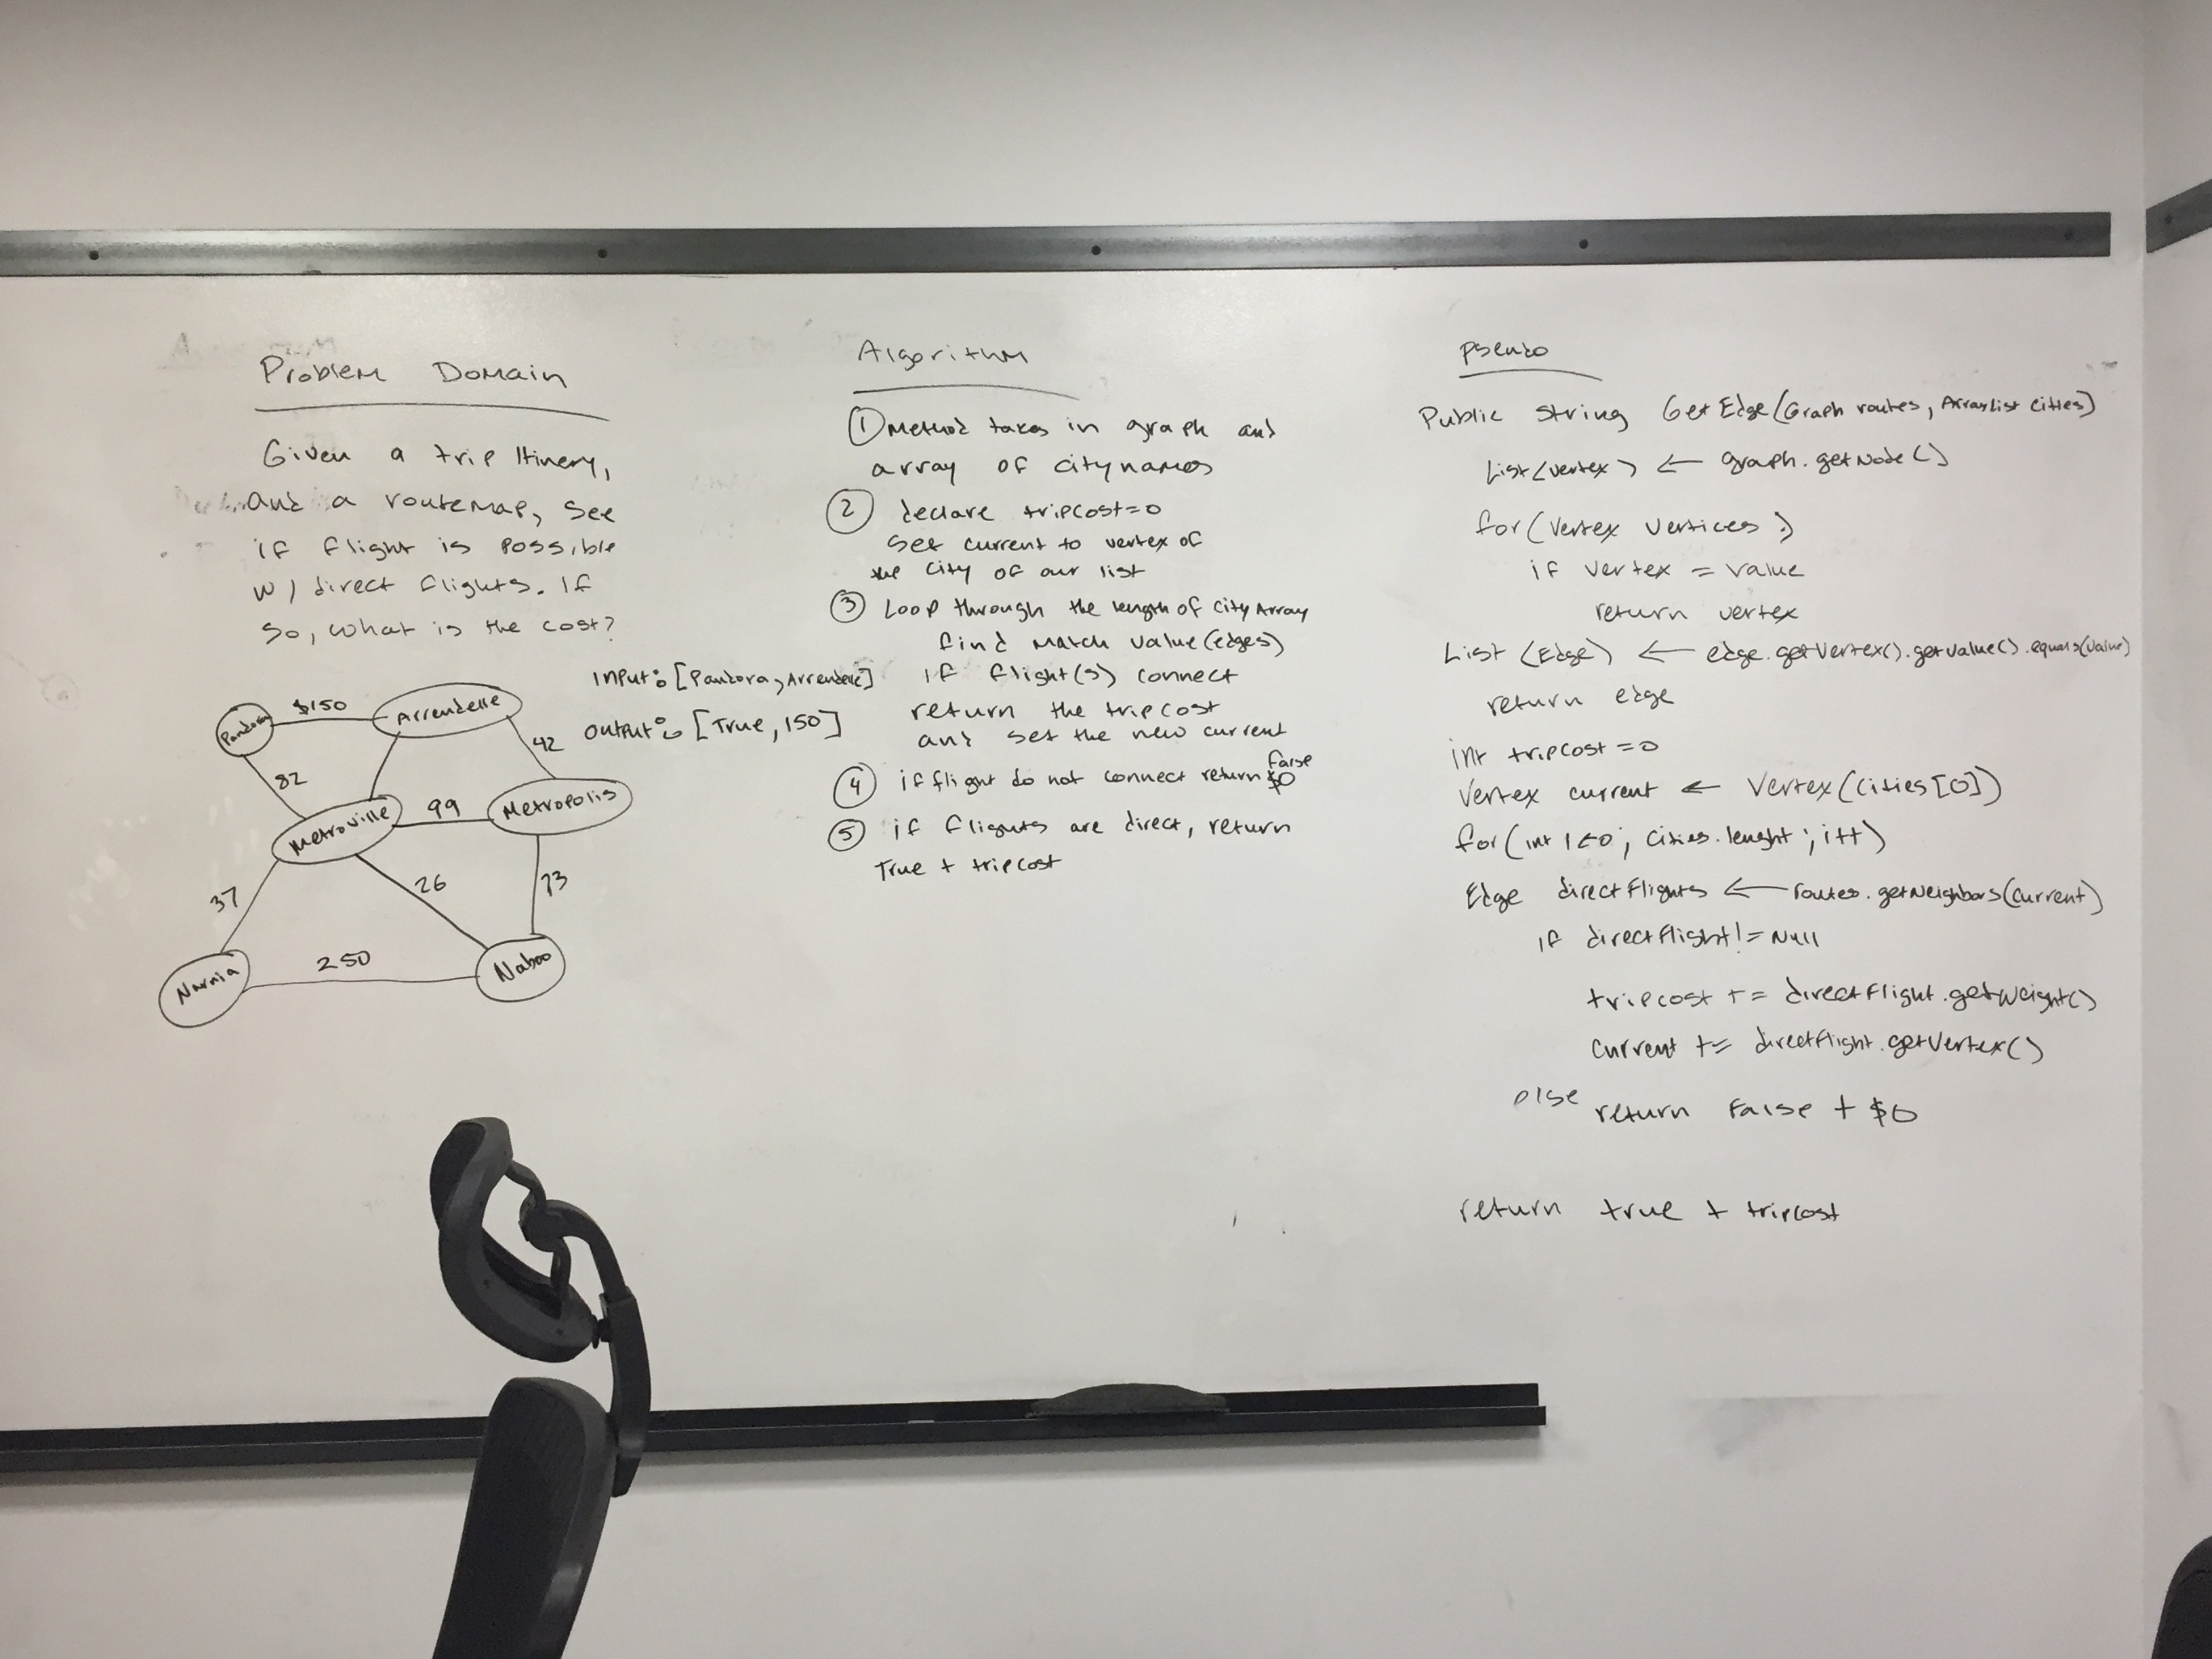 Problem Domain
Given a trip Itinery,
and a routemap, see
if flight is possible
w/ direct flights. If
so, what is the cost?
Input: [Pandora, Arrendelle]
Output: [True, 150]
Pandora
$150
Arrendelle
42
82
Metroville
99
Metropolis
37
26
73
Narnia
250
Naboo
Algorithm
① Method takes in graph and
array of city names
② declare tripcost=0
set current to vertex of
the city of our list
③ Loop through the length of city Array
find match value(edges)
if flight(s) connect
return the tripcost
and set the new current
④ if flight do not connect return false $0
⑤ if flights are direct, return
True + tripcost
pseudo
Public String GetEdge(Graph routes, ArrayList cities)
List<vertex> ← graph.getNode()
for(Vertex vertices:)
if vertex = value
return vertex
List <Edge> ← edge.getVertex().getValue().equals(value)
return edge
int tripcost =0
Vertex current ← Vertex(cities[0])
for(int i<0; cities.lenght; i++)
Edge directFlights ← routes.getNeighbors(current)
if directFlight != Null
tripcost += directFlight.getWeight()
current += directFlight.getVertex()
else
return False + $0
return true + tripcost